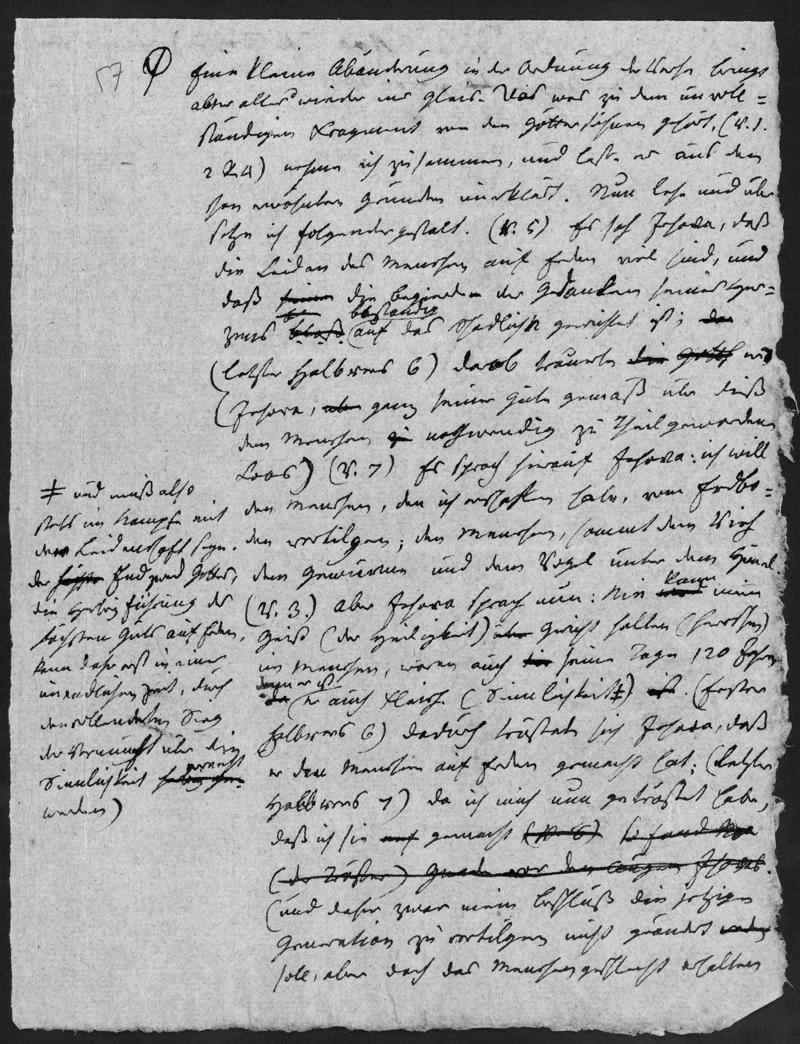 57
Eine kleine Abänderung in der Ordnung der Verse bringt
aber alles wieder ins Gleis. Das was zu dem unvoll=
ständigen Fragment von den Göttersöhnen gehört, (V. 1.
2 & 4) nehme ich zusammen, und lasse es aus den
schon erwähnten Gründen unerklärt. Nun lese und über
setze ich folgendergestalt. (V. 5) Es sah Jehova, daß
die Leiden des Menschen auf Erden viel sind, und
daß die Begierden der Gedanken seines Her=
zens beständig auf das Schädliche gerichtet ist;
(letzter Halbvers 6) darob trauerte
(Jehova, ganz seiner Güte gemäß über dieß
dem Menschen nothwendig zu Theil gewordene
Loos) (V. 7) Es sprach hierauf Jehova: ich will
den Menschen, den ich erschaffen habe, vom Erdbo=
den vertilgen; den Menschen, sammt dem Vieh
dem Gewürme und dem Vogel unter dem Himel.
(V. 3.) Aber Jehova sprach nun: Nie kann mein
Geist (der Heiligkeit) Gericht halten (herrschen)
im Menschen, wären auch seine Tage 120 Jahre
denn er ist
er auch Fleisch (Sinnlichkeit ǂ) (Erster
Halbvers 6) dadurch tröstete sich Jehova, daß
er den Menschen auf Erden gemacht hat; (letzter
Halbvers 7) da ich mich nun getröstet habe,
daß ich sie gemacht
(und daher zwar mein Beschluß die jetzige
Generation zu vertilgen nicht geändert werden
soll, aber doch das Menschengeschlecht erhalten
ǂ und muß also
stets im Kampfe mit
der Leidenschaft seyn.
der Endzweck Gottes,
die Herbeiführung des
höchsten Guts auf Erden,
kann daher erst in einer
unendlichen Zeit, durch
den vollendeten Sieg
der Vernunft über die
Sinnlichkeit erreicht
werden)